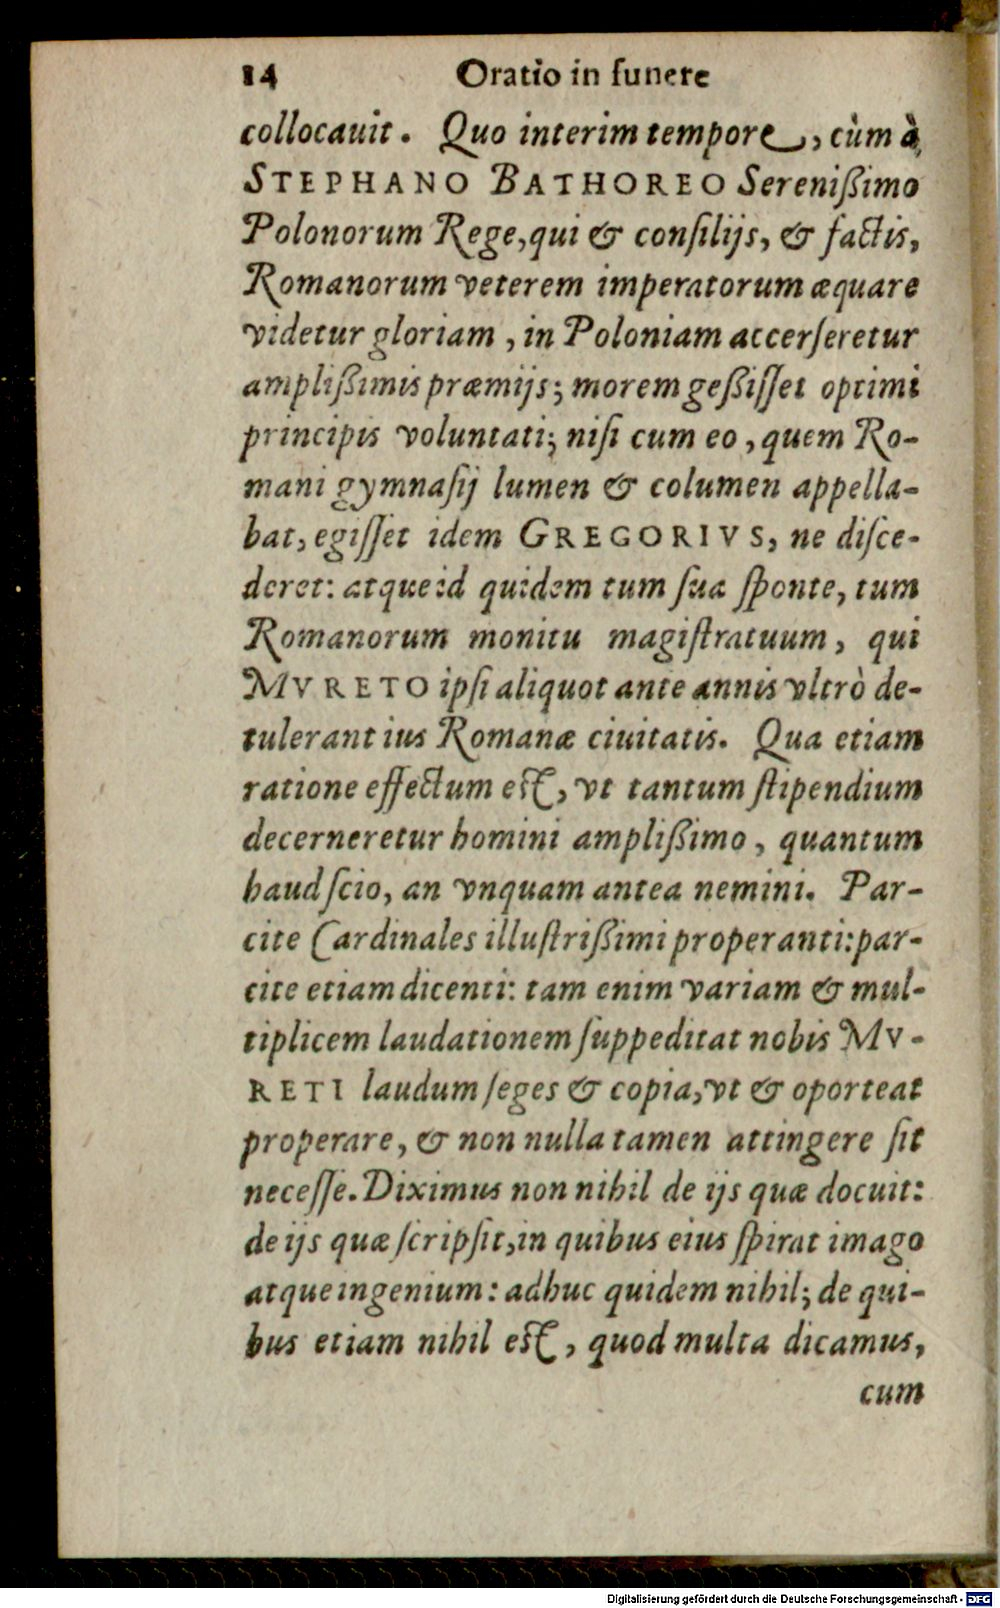 14 Oratio in funere
collocauit. Quo interim tempore, cùm à
STEPHANO BATHOREO Serenißimo
Polonorum Rege, qui & conſilijs, & factis,
Romanorum veterem imperatorum æquare
videtur gloriam, in Poloniam accerſeretur
amplißimis præmijs; morem geßiſſet optimi
principis voluntati; niſi cum eo, quem Ro-
mani gymnaſij lumen & columen appella-
bat, egiſſet idem GREGORIVS, ne diſce-
deret: atque id quidem tum ſua ſponte, tum
Romanorum monitu magiſtratuum, qui
MVRETO ipſi aliquot ante annis vltrò de-
tulerant ius Romanæ ciuitatis. Qua etiam
ratione effectum eſt, vt tantum ſtipendium
decerneretur homini amplißimo, quantum
haud ſcio, an vnquam antea nemini. Par-
cite Cardinales illuſtrißimi properanti: par-
cite etiam dicenti: tam enim variam & mul-
tiplicem laudationem ſuppeditat nobis MV-
RETI laudum ſeges & copia, vt & oporteat
properare, & non nulla tamen attingere ſit
neceſſe. Diximus non nihil de ijs quæ docuit:
de ijs quæ ſcripſit, in quibus eius ſpirat imago
atque ingenium: adhuc quidem nihil; de qui-
bus etiam nihil eſt, quod multa dicamus,
cum
Digitalisierung gefördert durch die Deutsche Forschungsgemeinschaft - DFG